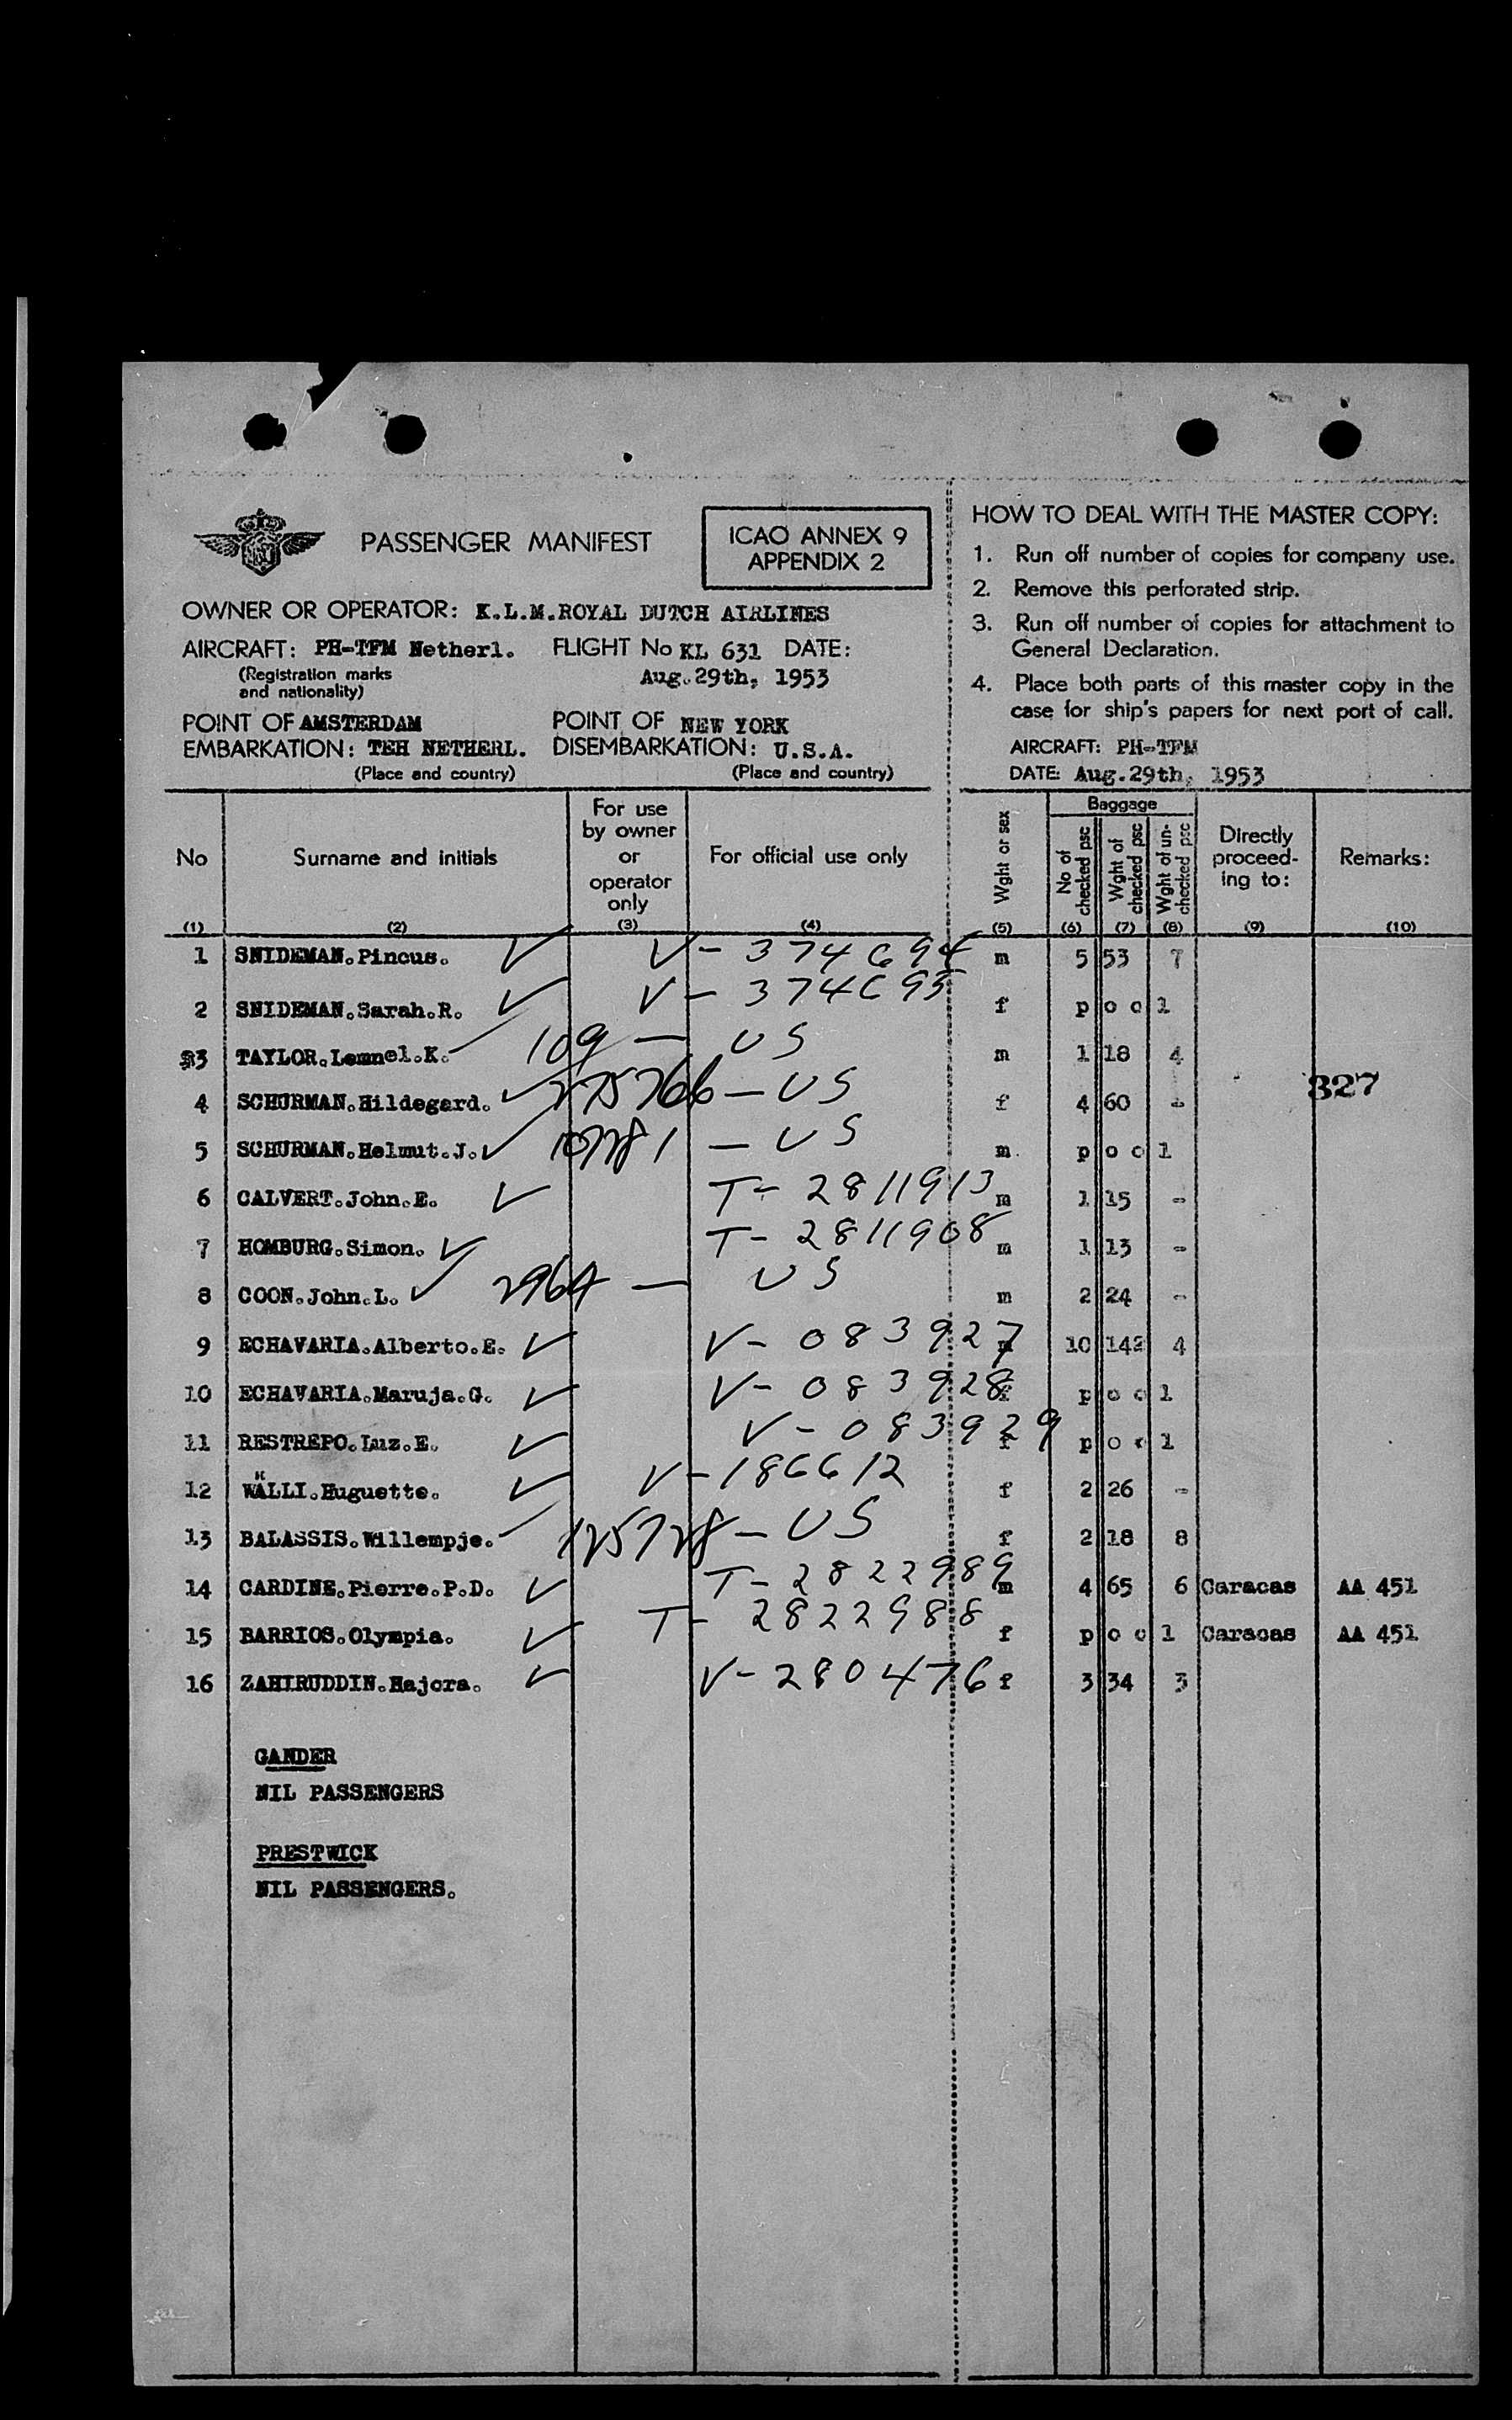 PASSENGER MANIFEST
ICAO ANNEX 9
APPENDIX 2
OWNER OR OPERATOR: K.L.M.ROYAL DUTCH AIRLINES
AIRCRAFT: PH-TFM Netherl. FLIGHT No KL 631 DATE:
(Registration marks Aug.29th, 1953
and nationality)
POINT OF AMSTERDAM POINT OF NEW YORK
EMBARKATION: TEH NETHERL. DISEMBARKATION: U.S.A.
(Place and country) (Place and country)
HOW TO DEAL WITH THE MASTER COPY:
1. Run off number of copies for company use.
2. Remove this perforated strip.
3. Run off number of copies for attachment to
General Declaration.
4. Place both parts of this master copy in the
case for ship's papers for next port of call.
AIRCRAFT: PH-TFM
DATE: Aug.29th, 1953
No
(1)
Surname and initials
(2)
For use
by owner
or
operator
only
(3)
For official use only
(4)
Wght or sex
(5)
Baggage
No of
checked psc
(6)
Wght of
checked psc
(7)
Wght of un-
checked psc
(8)
Directly
proceed-
ing to:
(9)
Remarks:
(10)
1 SNIDEMAN.Pincus. V- 374694 m 5 53 7
2 SNIDEMAN.Sarah.R. V- 374695 f p o o l
3 TAYLOR.Lemnel.K. 109 — US m 1 18 4
327
4 SCHURMAN.Hildegard. 275766 — US f 4 60 -
5 SCHURMAN.Helmut.J. — US m. p o o l
6 CALVERT.John.E. T- 2811913 m 1 15 -
7 HOMBURG.Simon. T- 2811908 m 1 13 -
8 COON.John.L. — US m 2 24 -
9 ECHAVARIA.Alberto.E. V- 083927 m 10 142 4
10 ECHAVARIA.Maruja.G. V- 083928 f p o o l
11 RESTREPO.Luz.E. V- 083929 f p o o l
12 WÄLLI.Huguette. V-186612 f 2 26 -
13 BALASSIS.Willempje. 125728 — US f 2 18 8
14 CARDINE.Pierre.P.D. T- 2822989 m 4 65 6 Caracas AA 451
15 BARRIOS.Olympia. T- 2822988 f p o o l Caracas AA 451
16 ZAHIRUDDIN.Hajora. V- 280476 f 3 34 3
GANDER
NIL PASSENGERS
PRESTWICK
NIL PASSENGERS.